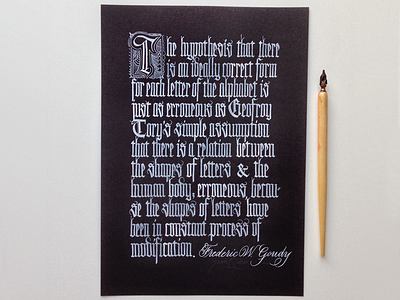 The hypothesis that there
is an ideally correct form
for each letter of the alphabet is
just as erroneous as Geofroy
Tory's simple assumption
that there is a relation between
the shapes of letters & the
human body, erroneous, becau-
se the shapes of letters have
been in constant process of
modification. Frederic W. Goudy